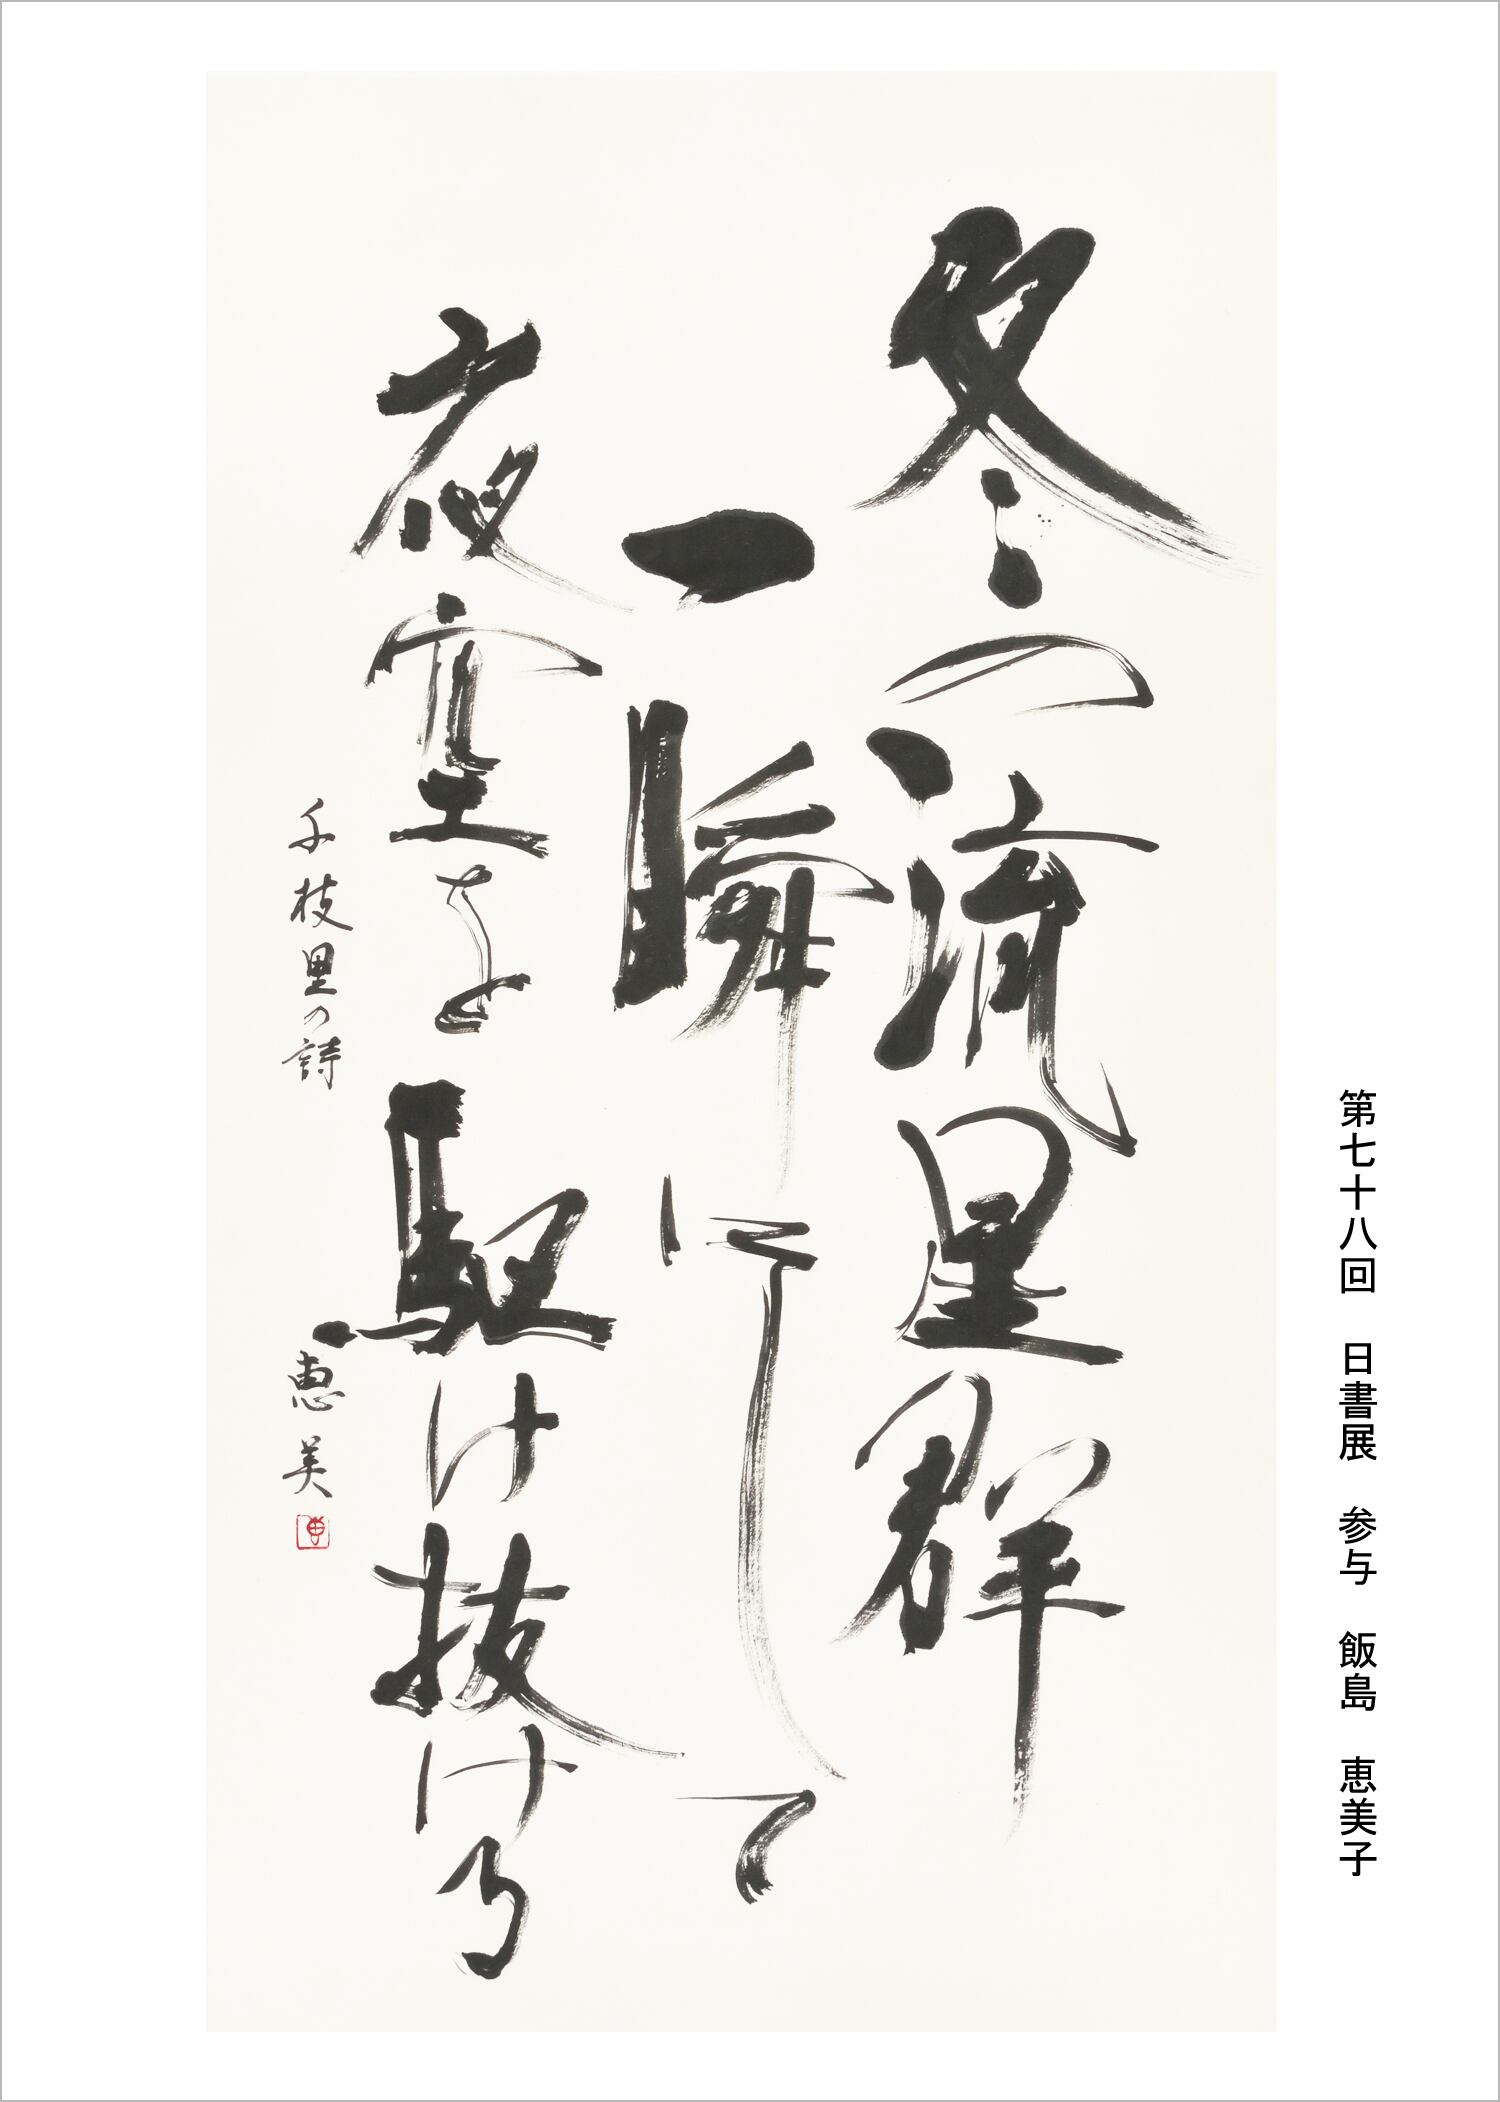 冬の流星群
一瞬にして
夜空を駆け抜ける
千枝里の詩
恵美
第七十八回 日書展 参与 飯島 恵美子